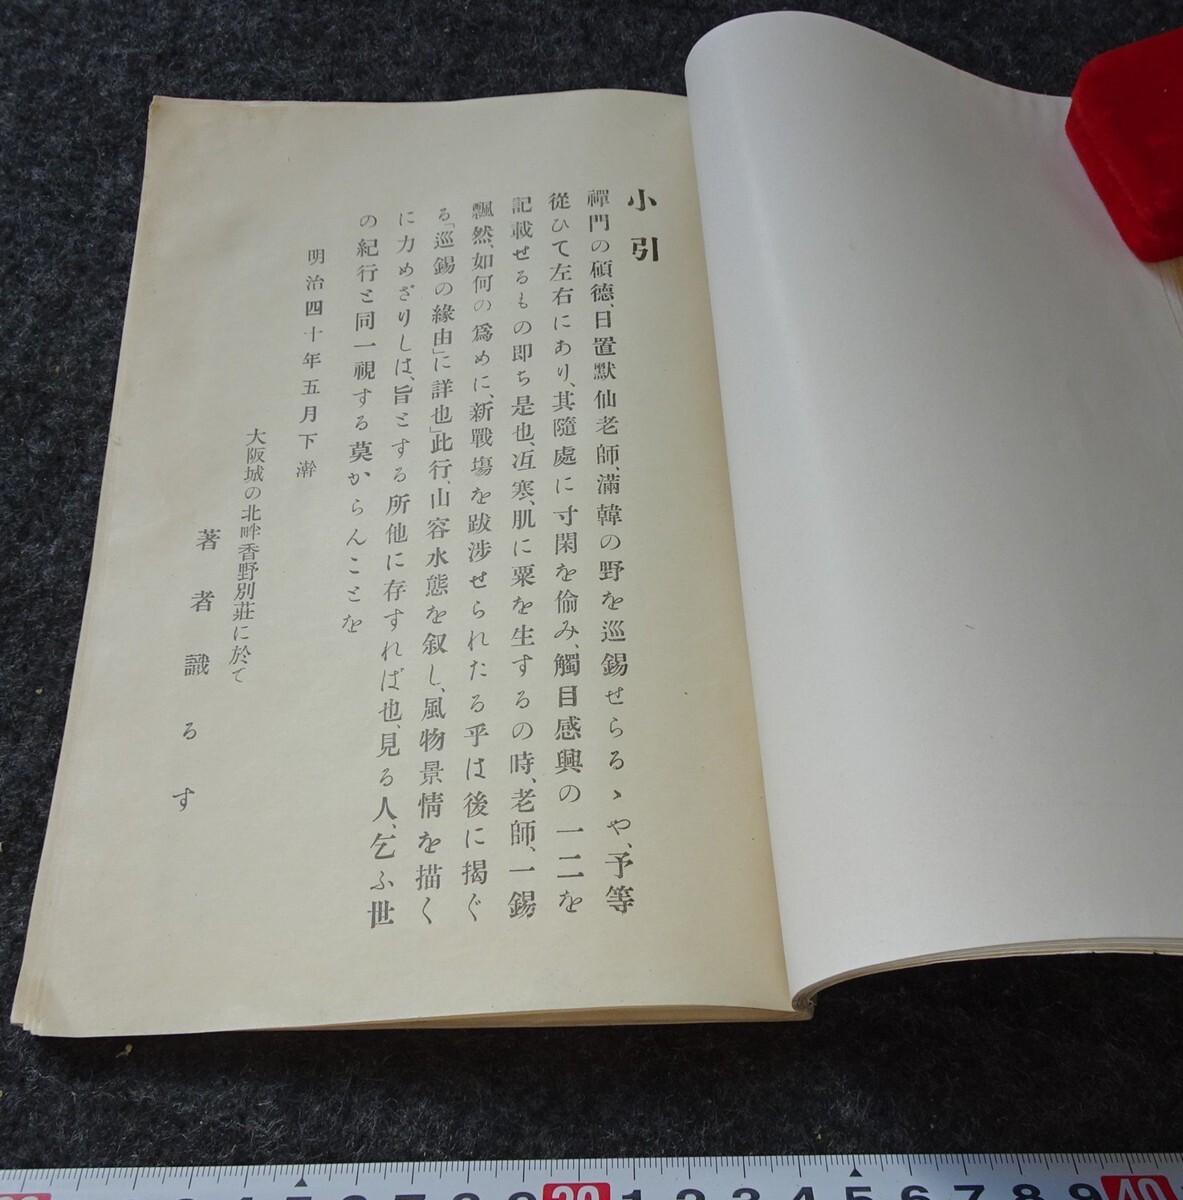 小引
禪門の碩德、日置默仙老師、滿韓の野を巡錫せらるゝや、予等
從ひて左右にあり、其隨處に寸閑を偸み、觸目感興の一二を
記載せるもの即ち是也、冱寒、肌に粟を生するの時、老師、一錫
飄然、如何の爲めに、新戰塲を跋涉せられたる乎は後に揭ぐ
る「巡錫の緣由」に詳也」此行、山容水態を叙し、風物景情を描く
に力めざりしは、旨とする所他に存すれば也、見る人、乞ふ世
の紀行と同一視する莫からんことを
明治四十年五月下澣
大阪城の北畔香野別莊に於て
著者識るす
6 7 8 9 30 1 2 3 4 5 6 7 8 9 40